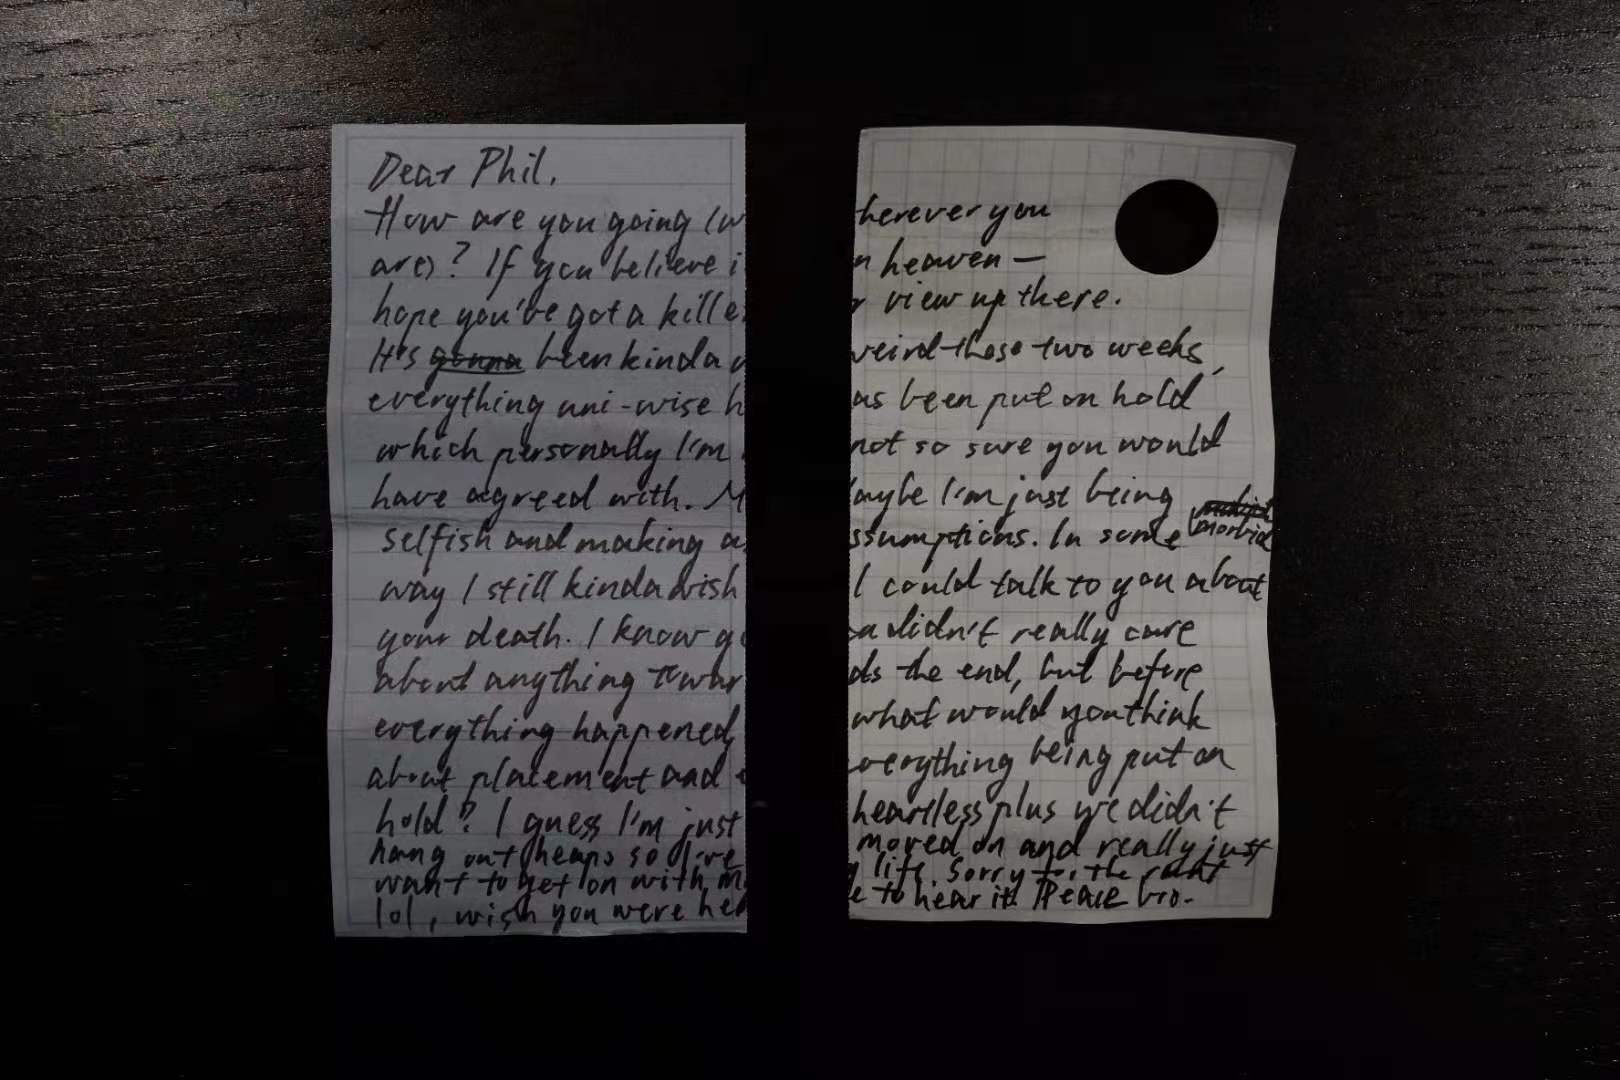 Dear Phil,
How are you going (wherever you
are)? If you believe in heaven —
hope you've got a killer view up there.
It's gonna been kinda weird these two weeks,
everything uni-wise has been put on hold
which personally I'm not so sure you would
have agreed with. Maybe I'm just being
selfish and making assumptions. In some morbid
way I still kinda wish I could talk to you about
your death. I know you didn't really care
about anything towards the end, but before
everything happened what would you think
about placement and everything being put on
hold? I guess I'm just heartless plus we didn't
hang out heaps so I've moved on and really just
want to get on with my life. Sorry for the rant
lol, wish you were here to hear it. Peace bro.